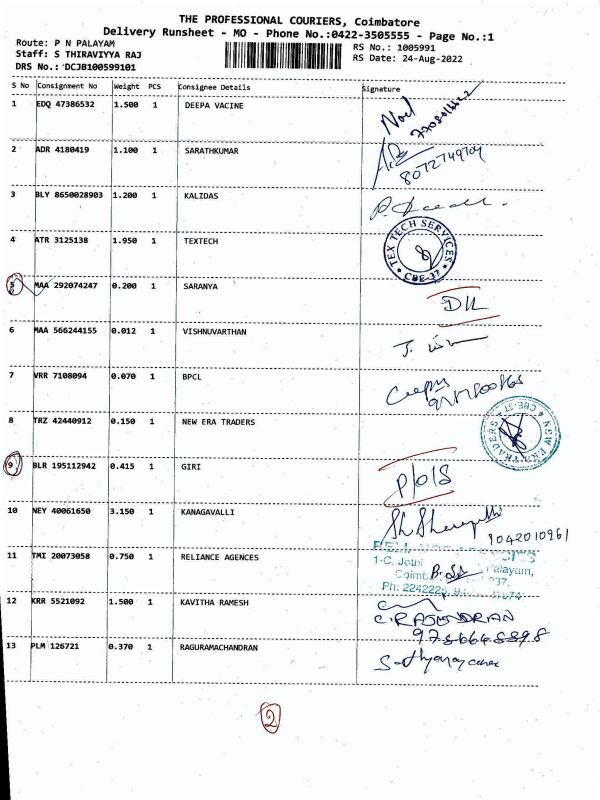 THE PROFESSIONAL COURIERS, Coimbatore
Delivery Runsheet - MO - Phone No.:0422-3505555 - Page No.:1
Route: P N PALAYAM
RS No.: 1005991
Staff: S THIRAVIYYA RAJ
RS Date: 24-Aug-2022
DRS No.: DCJB100599101
S No Consignment No Weight PCS Consignee Details Signature
1 EDQ 47386532 1.500 1 DEEPA VACINE
Noel
2 ADR 4180419 1.100 1 SARATHKUMAR
8072749704
3 BLY 8650028903 1.200 1 KALIDAS
4 ATR 3125138 1.950 1 TEXTECH
TEX TECH SERVICES
CBE-37
5 MAA 292074247 0.200 1 SARANYA
D/L
6 MAA 566244155 0.012 1 VISHNUVARTHAN
7 VRR 7108094 0.070 1 BPCL
8 TRZ 42440912 0.150 1 NEW ERA TRADERS
NEW ERA TRADERS CBE-37
9 BLR 195112942 0.415 1 GIRI
P/O/S
10 NEY 40061650 3.150 1 KANAGAVALLI
9042010961
11 TMI 20073058 0.750 1 RELIANCE AGENCES
1-C, Jothi
Palayam,
Coimb
037.
Ph: 2242225,
12 KRR 5521092 1.500 1 KAVITHA RAMESH
C.RAJENDRAN
13 PLM 126721 0.370 1 RAGURAMACHANDRAN
2